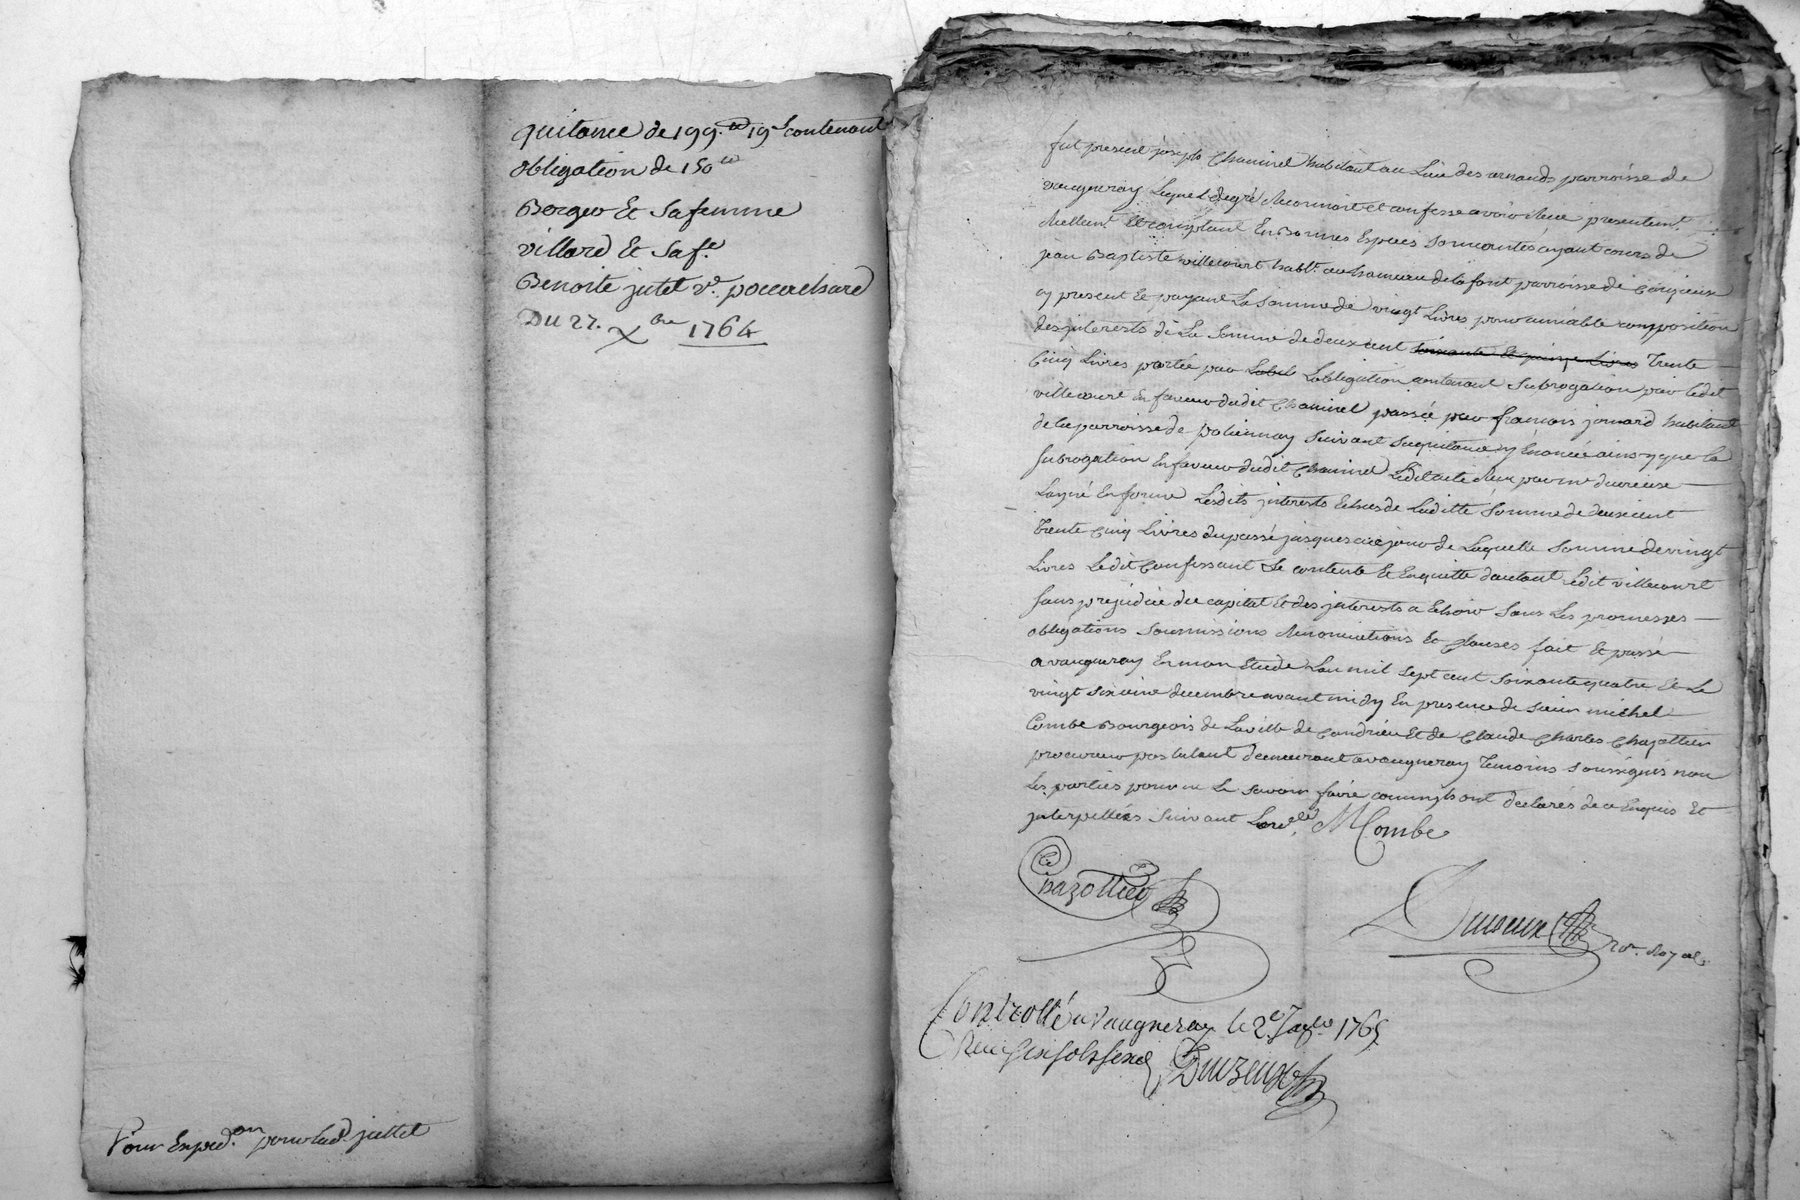 quitance de 199.ᵗᵗ 19ˢ contenant
obligation de 150ᵗᵗ
Berger Et Safemme
villard Et Saf.ᵉ
Benoite jutet vᵉ.
Du 27. Xbre 1764
Pour Exped.on pour lad. juttet
fut present joseph Chaminel habitant au Lieu des arnauds parroisse de
vaugneray Lequel degré Reconnoit et confesse avoir Receu presentemt.
Reellemt. Et comptant En Bonnes Especes Sonnantes ayant cours de
jean Baptiste villecourt habt. au hameau de la font parroisse de
cy present Et payant La Somme de vingt Livres pour amiable composition
des jnterests de La Somme de deux cent soixante Et quinze Livres Trente
Cinq Livres portée par Labl Lobligation contenant Subrogation par ledit
villecourt En faveur dudit Chaminel passée par francois jomard habitant
de la parroisse de pollionnay Suivant Saquitance y Enoncée ainsy que la
Subrogation En faveur dudit Chaminel Ledit acte Receu par me
Layné En forme Lesdits jnterests Echus de Laditte Somme de deux cent
Trente Cinq Livres du passé jusques a ce jour de Laquelle Somme de vingt
Livres Ledit Confessant Se contente Et Enquitte dautant Ledit villecourt
Sans prejudice du capital Et des jnterests a Echoir Sous Les promesses
obligations Soumissions Renonciations Et Clauses fait Et passé
a vaugneray En mon Etude Lan mil Sept cent Soixante quatre Et Le
vingt Sixieme decembre avant midy En presence de Sieur michel
Combe Bourgeois de La ville de Condrieu Et de Claude Charles Chazottier
procureur postulant demeurant a vaugneray Temoins Soussignés non
Les parties pour ne Le Savoir faire comm' ils ont declarés de ce Enquis Et
jnterpellées Suivant Lord.ce M Combe
Chazottier
nore. Royal
Controllé a Vaugneray le 2e. Janvr 1765
Receu Six Sols Six d